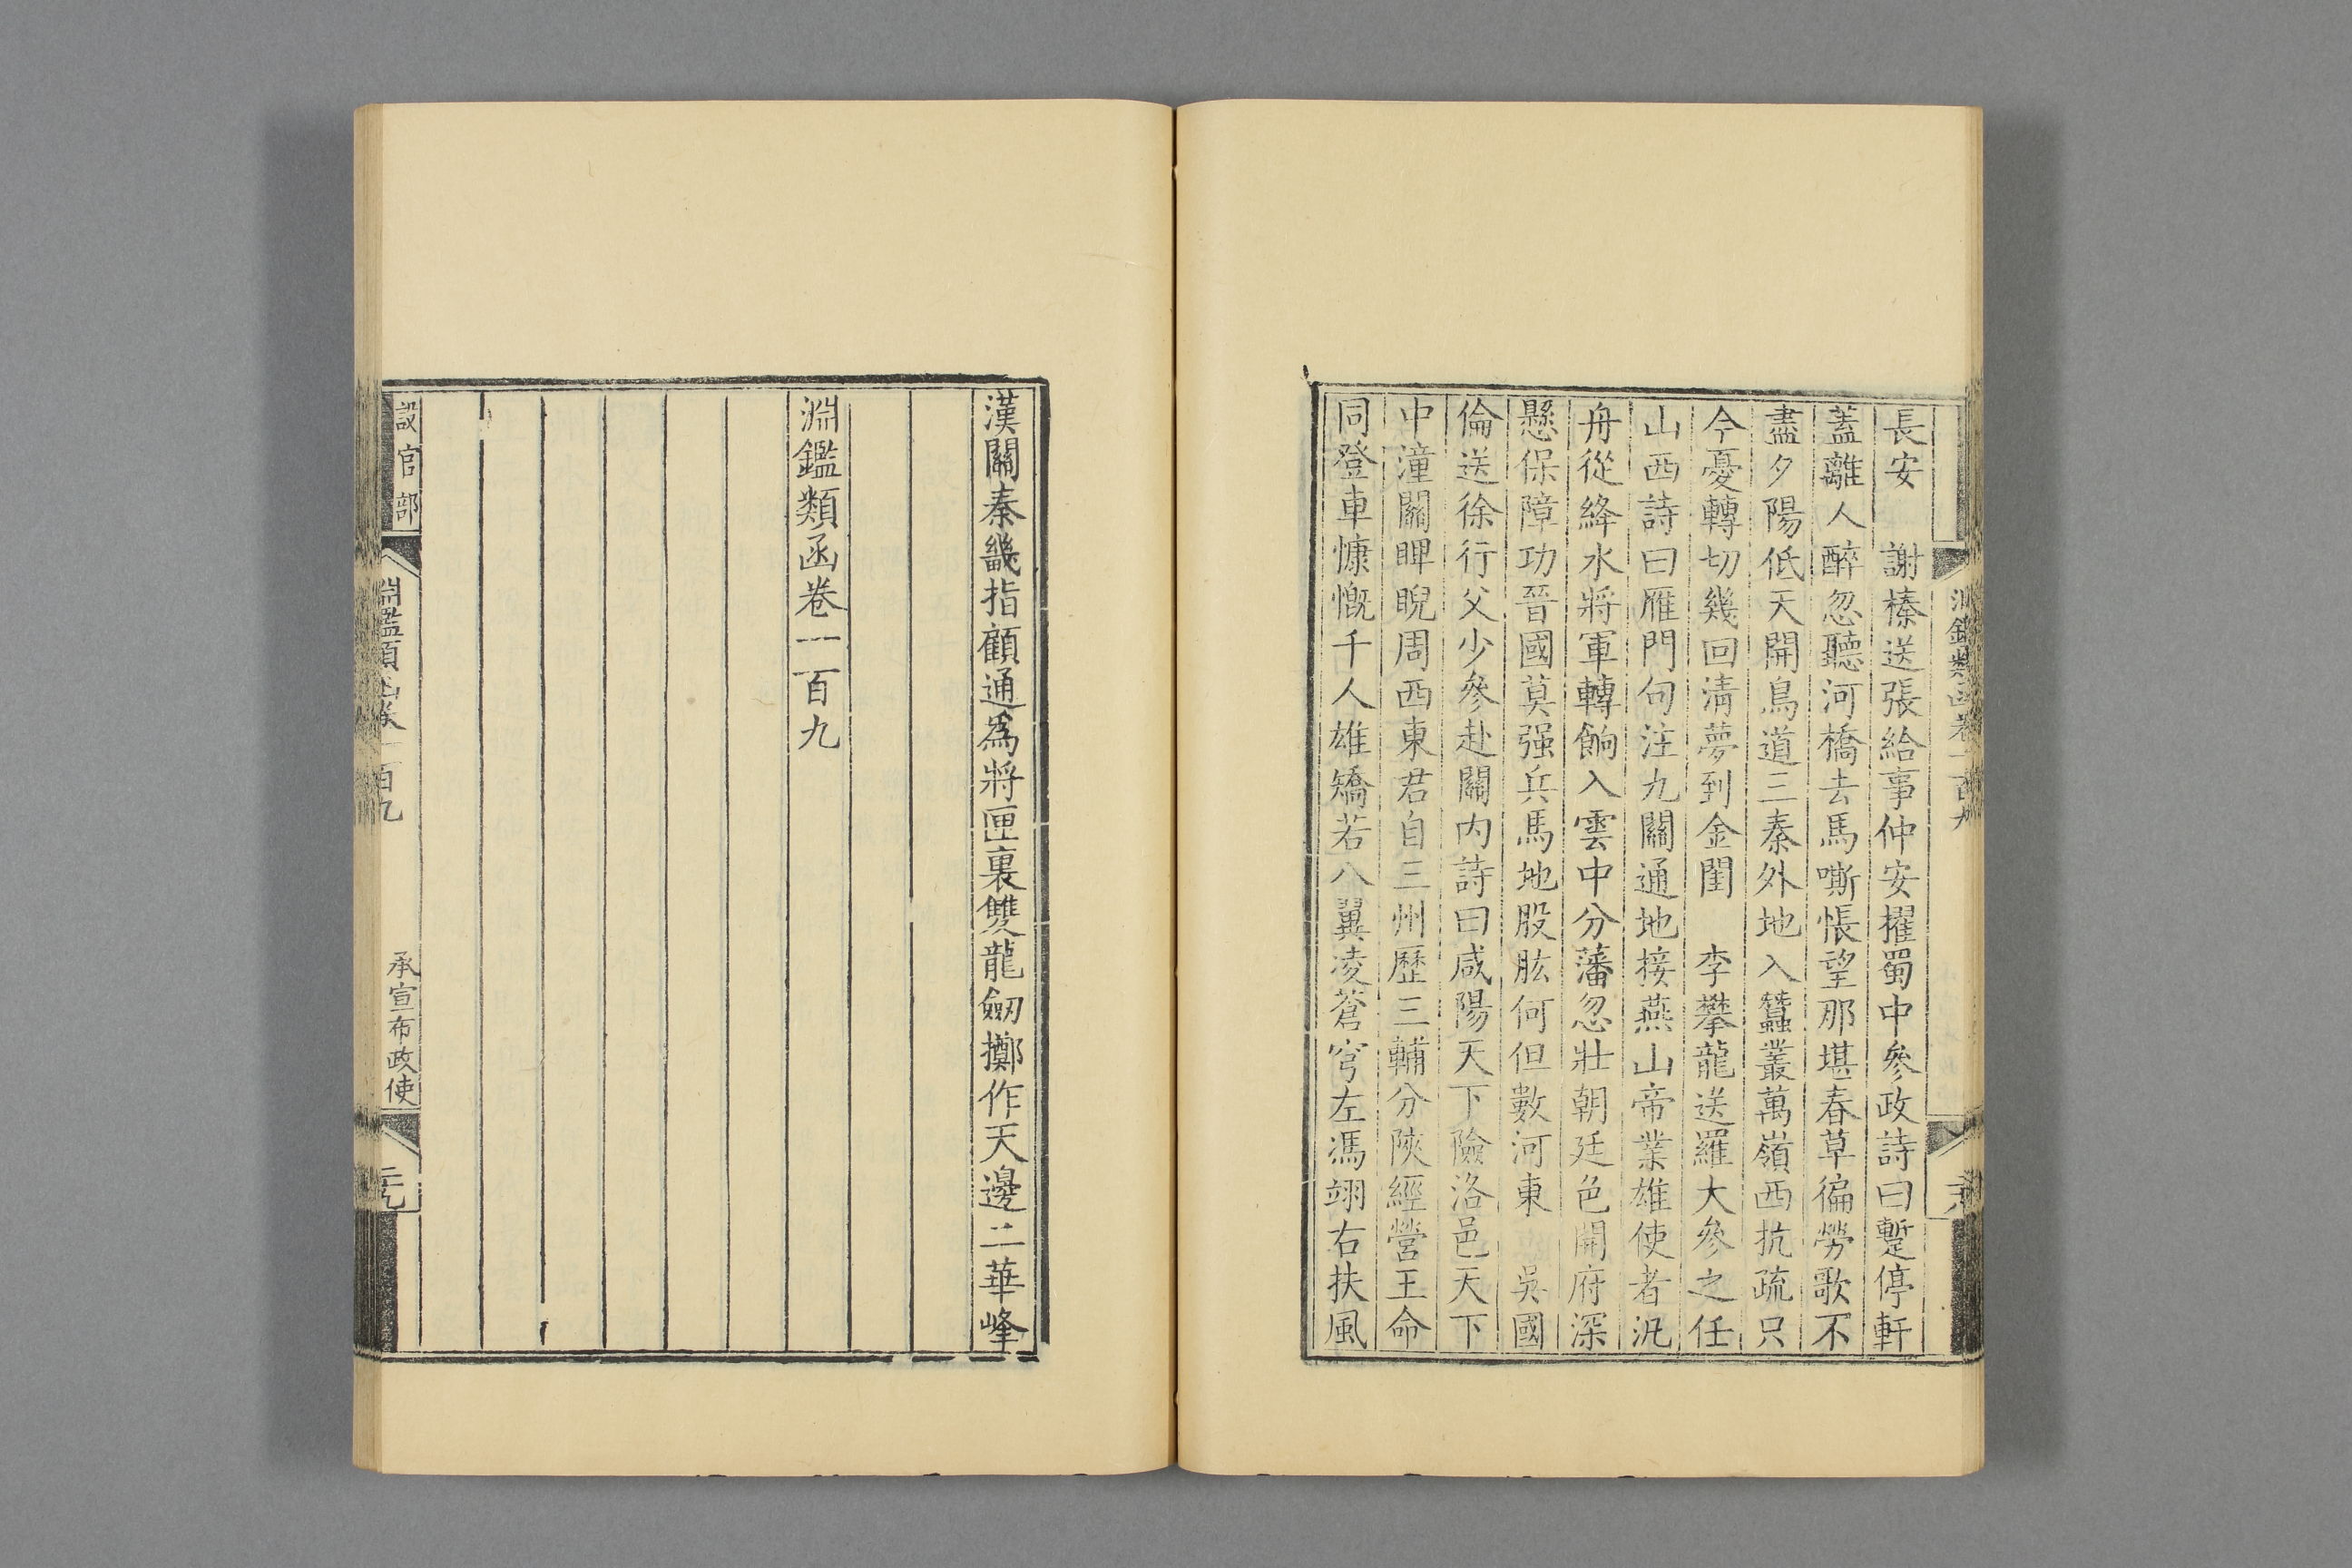 長安　謝榛送張給事仲安擢蜀中參政詩曰蹔停軒
蓋離人醉忽聽河橋去馬嘶悵望那堪春草徧勞歌不
盡夕陽低天開鳥道三秦外地入蠶叢萬嶺西抗疏只
今憂轉切幾回清夢到金閨　李攀龍送羅大參之任
山西詩曰雁門句注九關通地接燕山帝業雄使者汎
舟從絳水將軍轉餉入雲中分藩忽壯朝廷色開府深
懸保障功晉國莫强兵馬地股肱何但數河東　吳國
倫送徐行父少參赴關内詩曰咸陽天下險洛邑天下
中潼關睥睨周西東君自三州歷三輔分陝經營王命
同登車慷慨千人雄矯若八翼凌蒼穹左馮翊右扶風
漢關秦畿指顧通爲將匣裏雙龍劒擲作天邊二華峰
淵鑑類函卷一百九
設官部
淵鑑類函卷一百九
承宣布政使